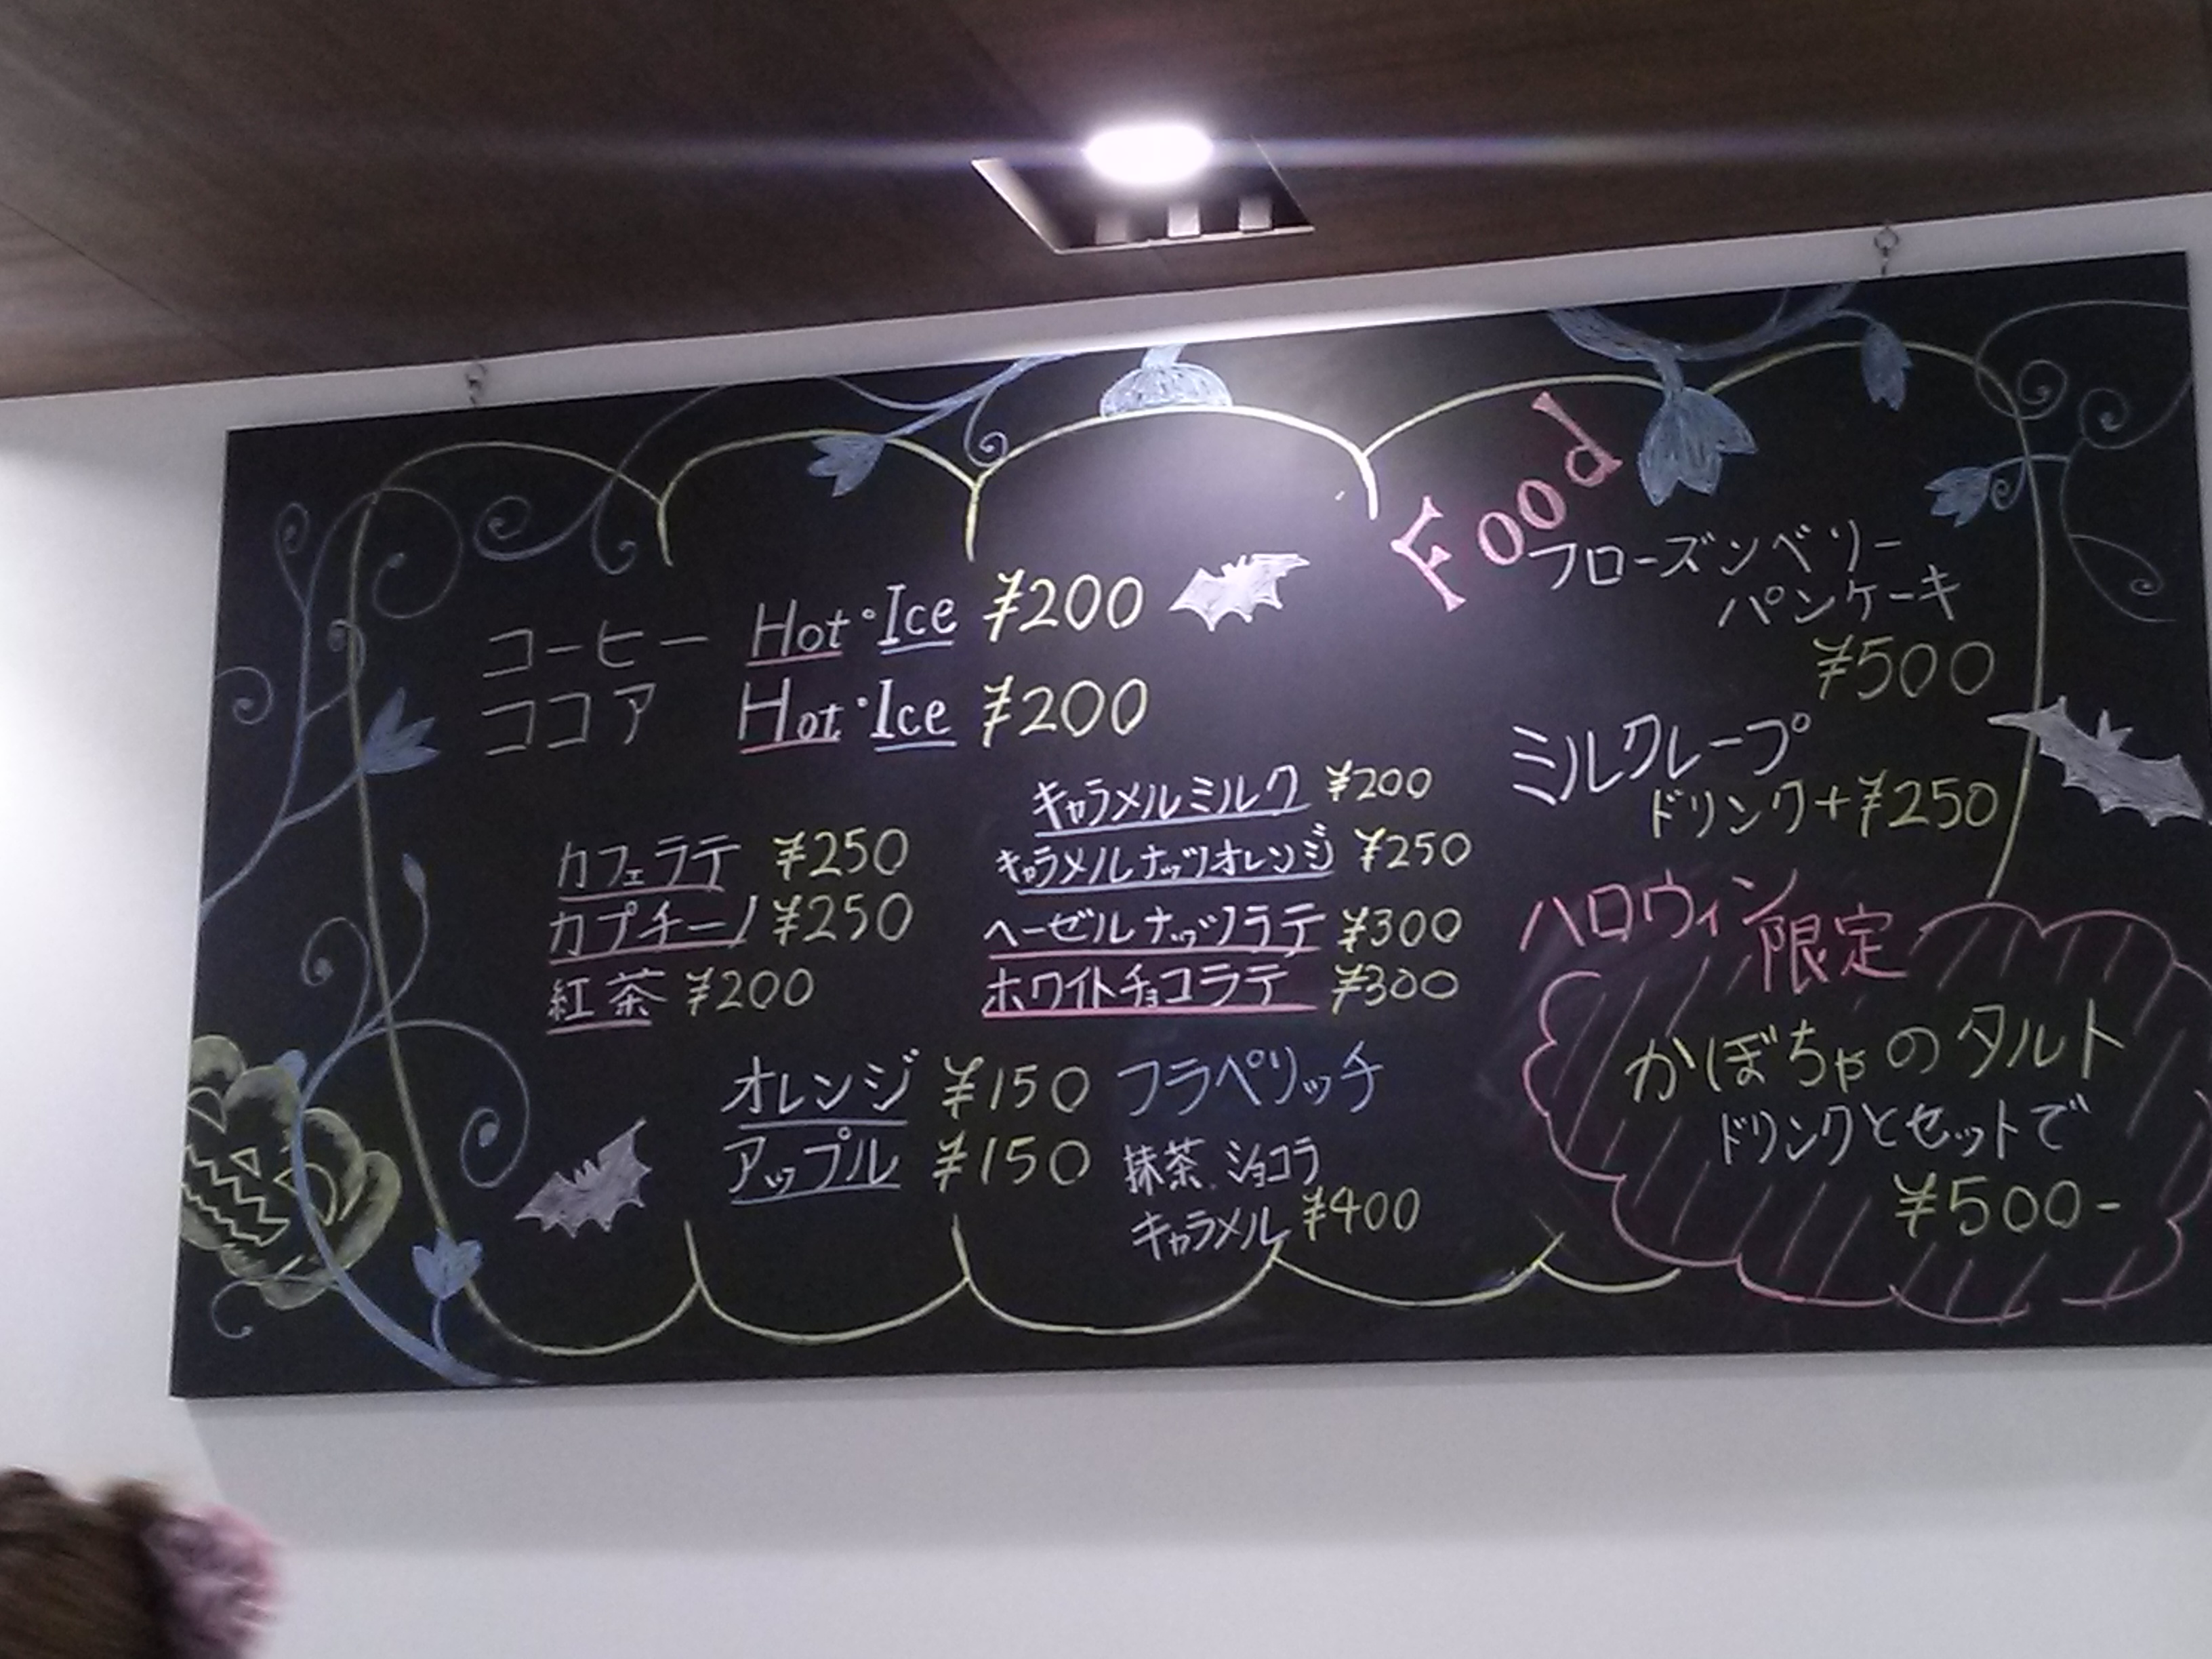 コーヒー Hot・Ice ¥200
ココア Hot・Ice ¥200
カフェラテ ¥250
カプチーノ ¥250
紅茶 ¥200
キャラメルミルク ¥200
キャラメルナッツオレンジ ¥250
ヘーゼルナッツラテ ¥300
ホワイトチョコラテ ¥300
オレンジ ¥150
アップル ¥150
フラペリッチ
抹茶、ショコラ
キャラメル ¥400
Food
フローズンベリー
パンケーキ
¥500
ミルクレープ
ドリンク+¥250
ハロウィン限定
かぼちゃのタルト
ドリンクとセットで
¥500-